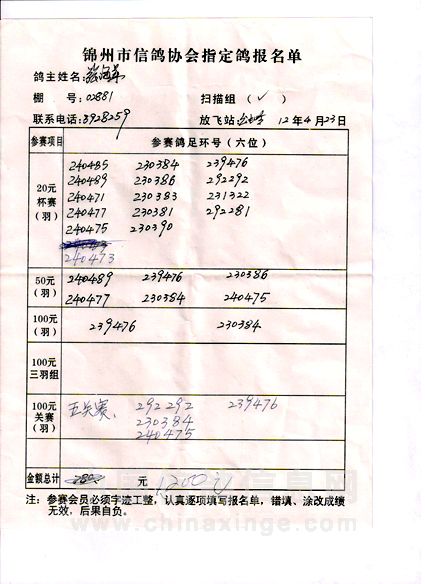 锦州市信鸽协会指定鸽报名单
鸽主姓名:
棚 号: 02881 扫描组 ( ✓ )
联系电话: 3928259 放飞站 12年4月23日
参赛项目 参赛鸽足环号 (六位)
20元杯赛(羽)
240485 230384 239476
240489 230386 292292
240471 230383 231322
240477 230381 292281
240475 230390
240473
50元(羽)
240489 239476 230386
240477 230384 240475
100元(羽)
239476 230384
100元三羽组
100元关赛(羽)
五关赛、 292292 239476
230384
240475
金额总计 元 1200元
注: 参赛会员必须字迹工整, 认真逐项填写报名单, 错填、涂改成绩
无效, 后果自负。
www.chinaxinge.com